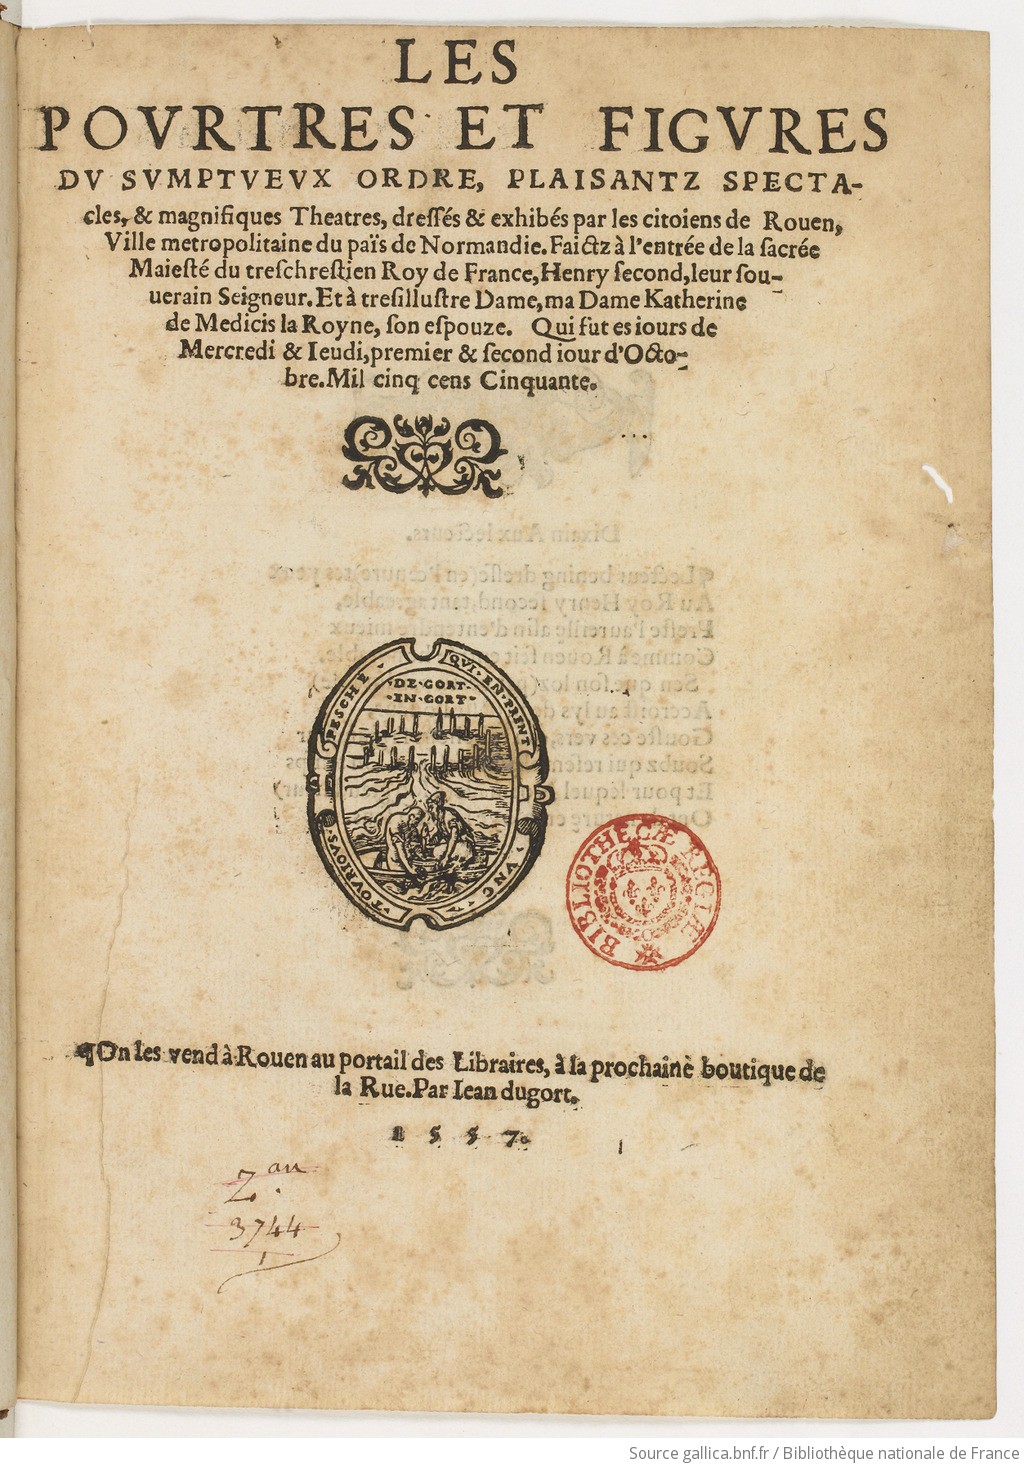 LES
POVRTRES ET FIGVRES
DV SVMPTVEVX ORDRE, PLAISANTZ SPECTA-
cles, & magnifiques Theatres, dreſſés & exhibés par les citoiens de Rouen,
Ville metropolitaine du païs de Normandie. Faictz à l'entrée de la ſacrée
Maieſté du treſchreſtien Roy de France, Henry ſecond, leur ſou-
uerain Seigneur. Et à treſilluſtre Dame, ma Dame Katherine
de Medicis la Royne, ſon eſpouze. Qui fut es iours de
Mercredi & Ieudi, premier & ſecond iour d'Octo-
bre. Mil cinq cens Cinquante.
Dixain Aux lecteurs.
PESCHE QVI EN PRINT VNG TOVRIOVS
DE GORT
EN GORT
BIBLIOTHECÆ REGIÆ
¶On les vend à Rouen au portail des Libraires, à la prochaine boutique de
la Rue. Par Iean dugort.
1557.
Z. an
3744
1
Source gallica.bnf.fr / Bibliothèque nationale de France